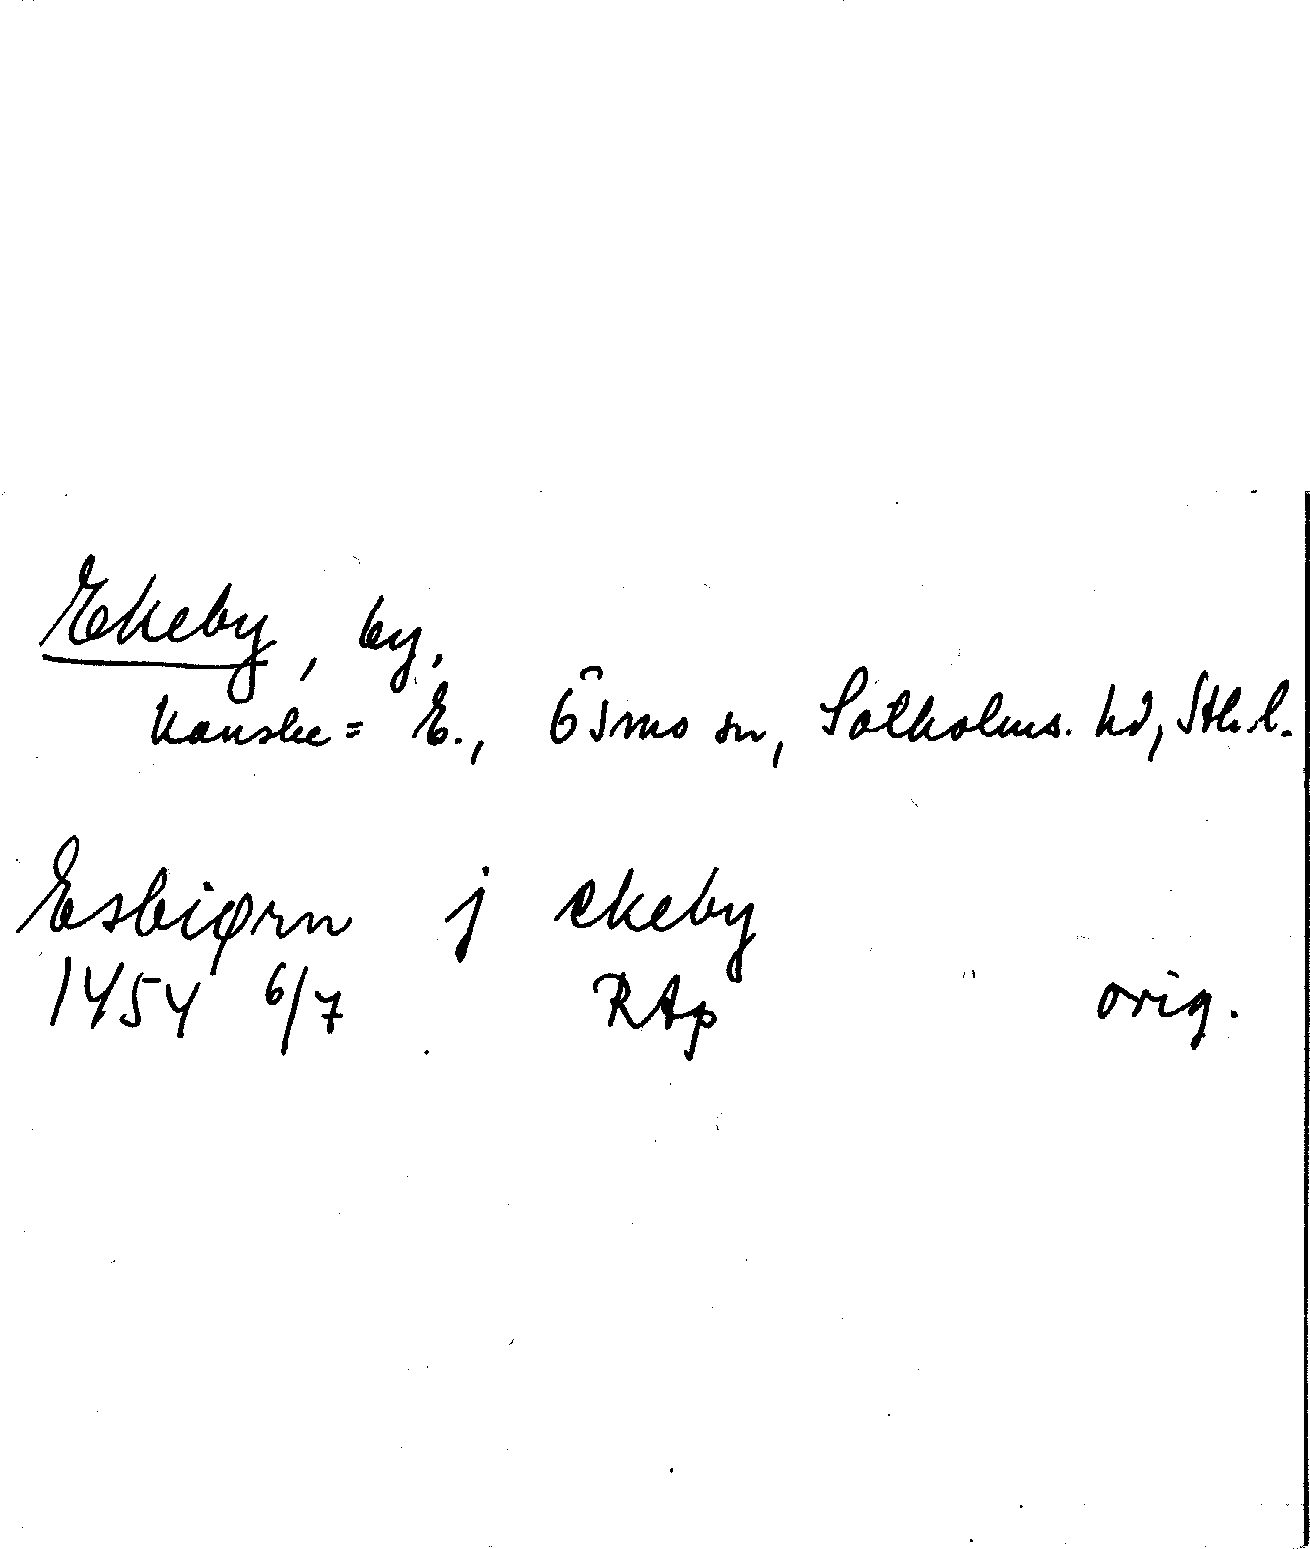 Ekeby, by,
kanske = E., Ösmo sn, Sotholms. hd, Sth.l.
Esbiørn j ekeby
1454 6/7 RAp orig.